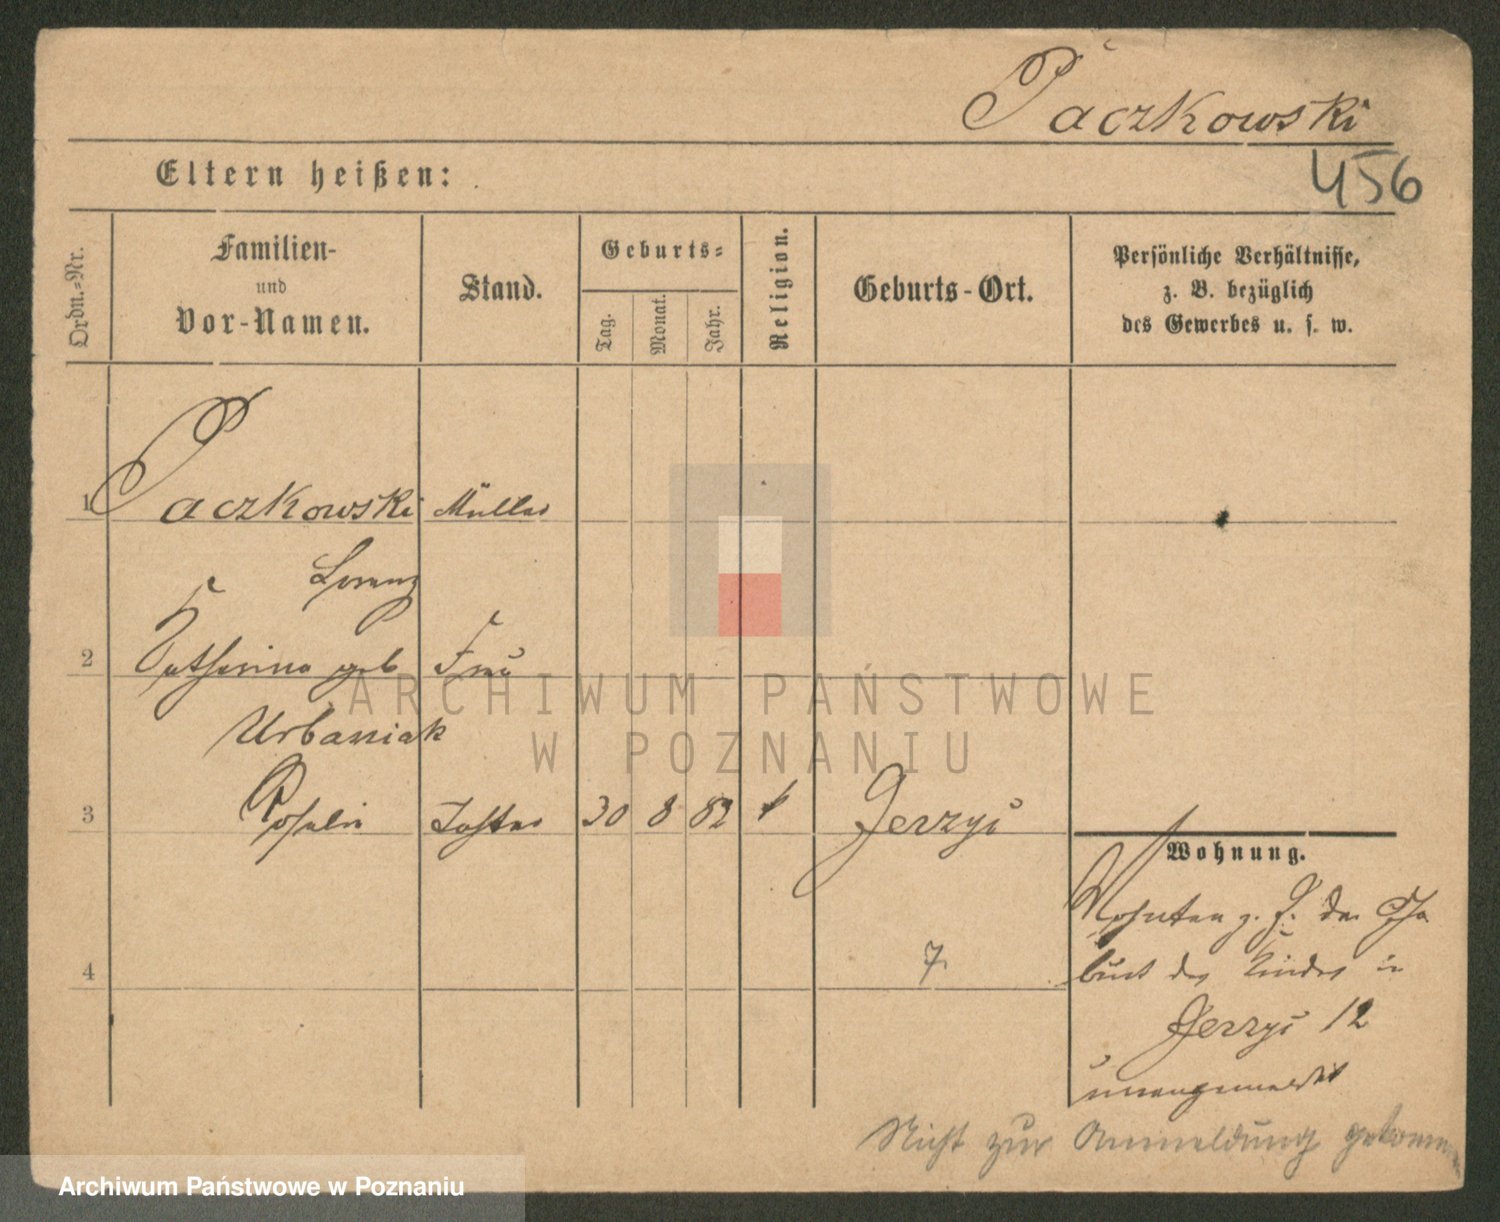 Paczkowski
456
Eltern heißen:
Ordn.=Nr.
Familien-
und
Vor-Namen.
Stand.
Geburts=
Tag.
Monat.
Jahr.
Religion.
Geburts-Ort.
Persönliche Verhältnisse,
z. B. bezüglich
des Gewerbes u. s. w.
1 Paczkowski Müller
Lorenz
2 Katharina geb Frau
Urbaniak
3 Tochter 30 8 82 k Jerzyce
4
7.
Wohnung.
Wohnten z. Z. der Ge
burt des Kindes in
Jerzyce 12
unangemeldet
Nicht zur Anmeldung gekommen
ARCHIWUM PAŃSTWOWE
W POZNANIU
Archiwum Państwowe w Poznaniu